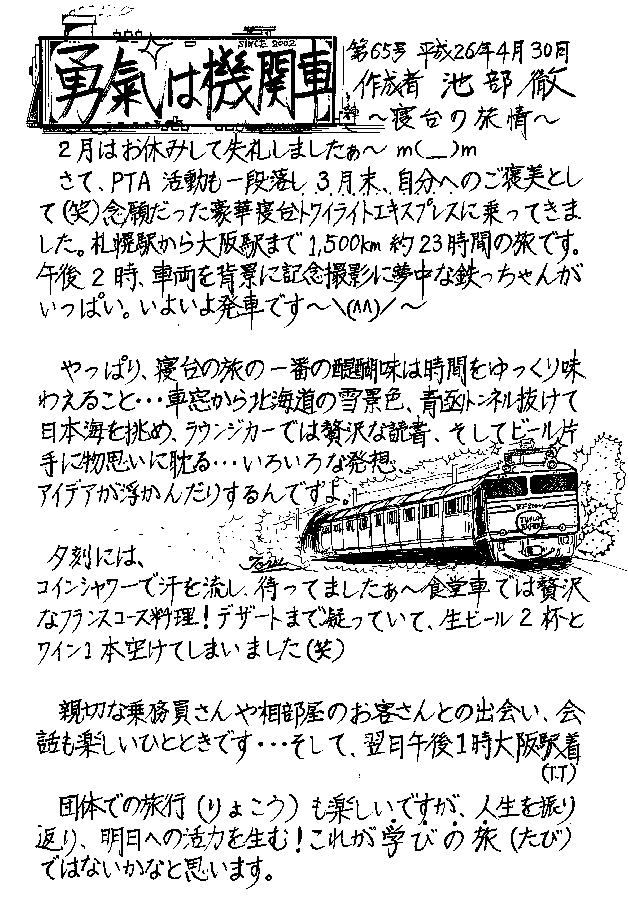 SINCE 2002
勇氣は機関車
第65号 平成26年4月30日
作成者 池部 徹
～寝台の旅情～
２月はお休みして失礼しましたぁ～ m(__)m
さて、PTA 活動も一段落し、3月末、自分へのご褒美とし
て(笑)念願だった豪華寝台トワイライトエキスプレスに乗ってきま
した。札幌駅から大阪駅まで 1,500km 約23時間の旅です。
午後２時、車両を背景に記念撮影に夢中な鉄っちゃんが
いっぱい。いよいよ発車です～＼(^^)／～
やっぱり、寝台の旅の一番の醍醐味は時間をゆっくり味
わえること・・・車窓から北海道の雪景色、青函トンネル抜けて
日本海を挑め、ラウンジカーでは贅沢な読書、そしてビール片
手に物思いに耽る・・・いろいろな発想、
アイデアが浮かんだりするんですよ。
夕刻には、
コインシャワーで汗を流し、待ってましたぁ～食堂車では贅沢
なフランスコース料理！デザートまで凝っていて、生ビール２杯と
ワイン１本空けてしまいました(笑)
親切な乗務員さんや相部屋のお客さんとの出会い、会
話も楽しいひとときです・・・そして、翌日午後１時大阪駅着
(T.T)
団体での旅行（りょこう）も楽しいですが、人生を振り
返り、明日への活力を生む！これが学びの旅（たび）
ではないかなと思います。